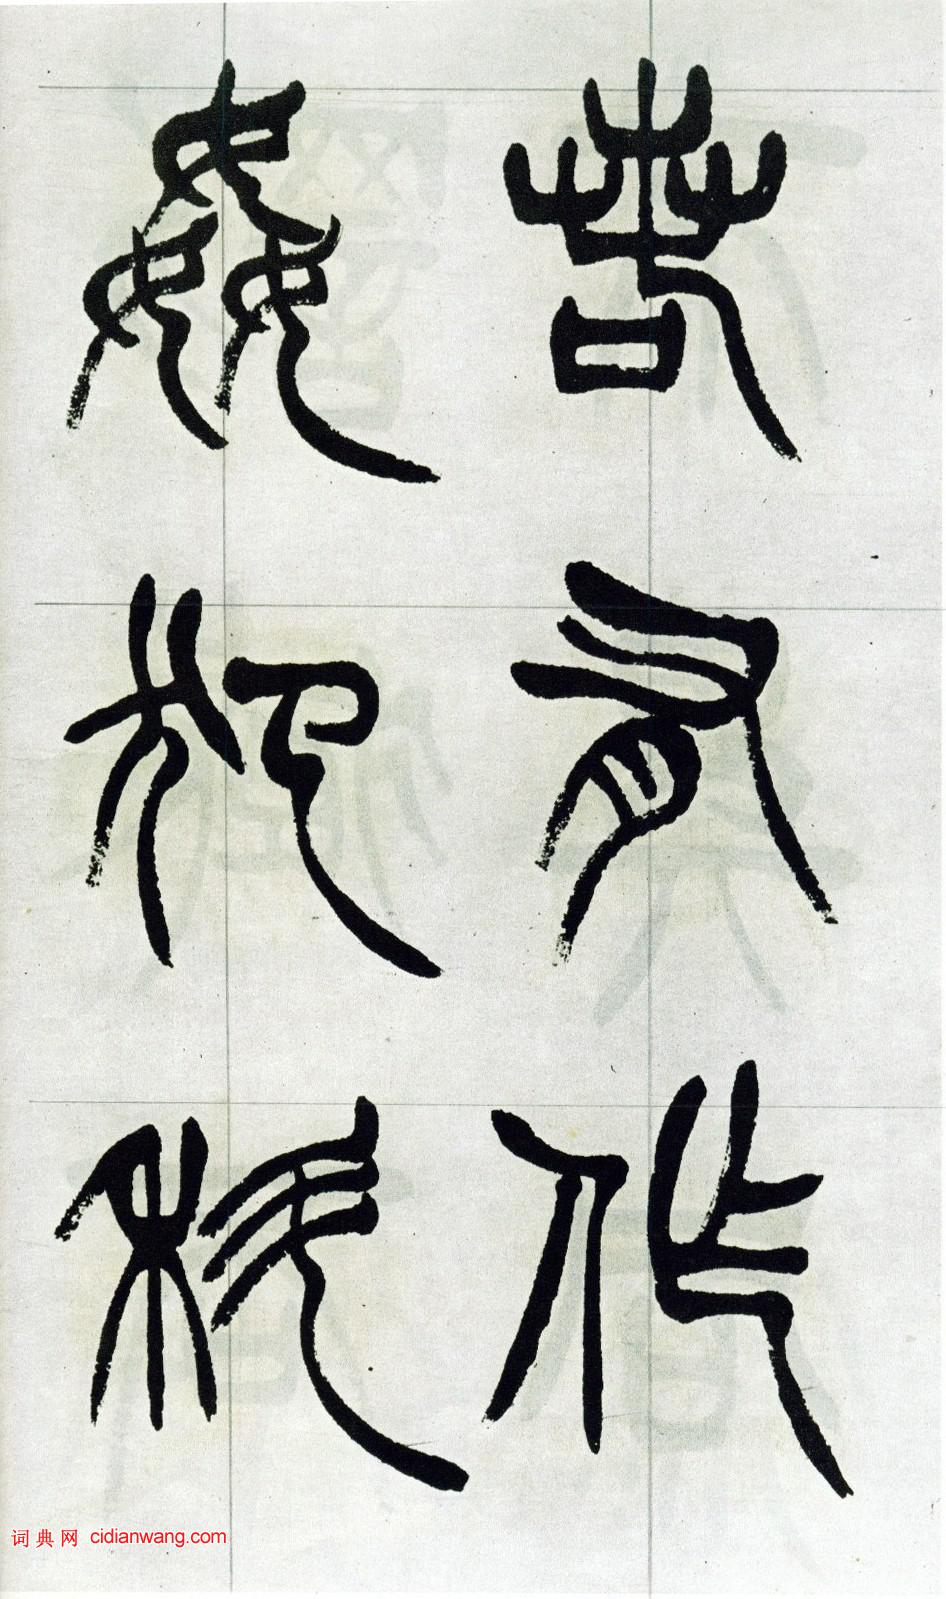 若有作
姦犯科
词典网 cidianwang.com